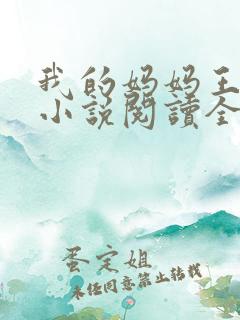 我的妈妈王
小说閱讀全
蛋定姐
未经同意禁止转载